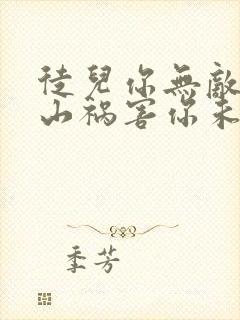 徒兒你無敵
山禍害你未
季芳